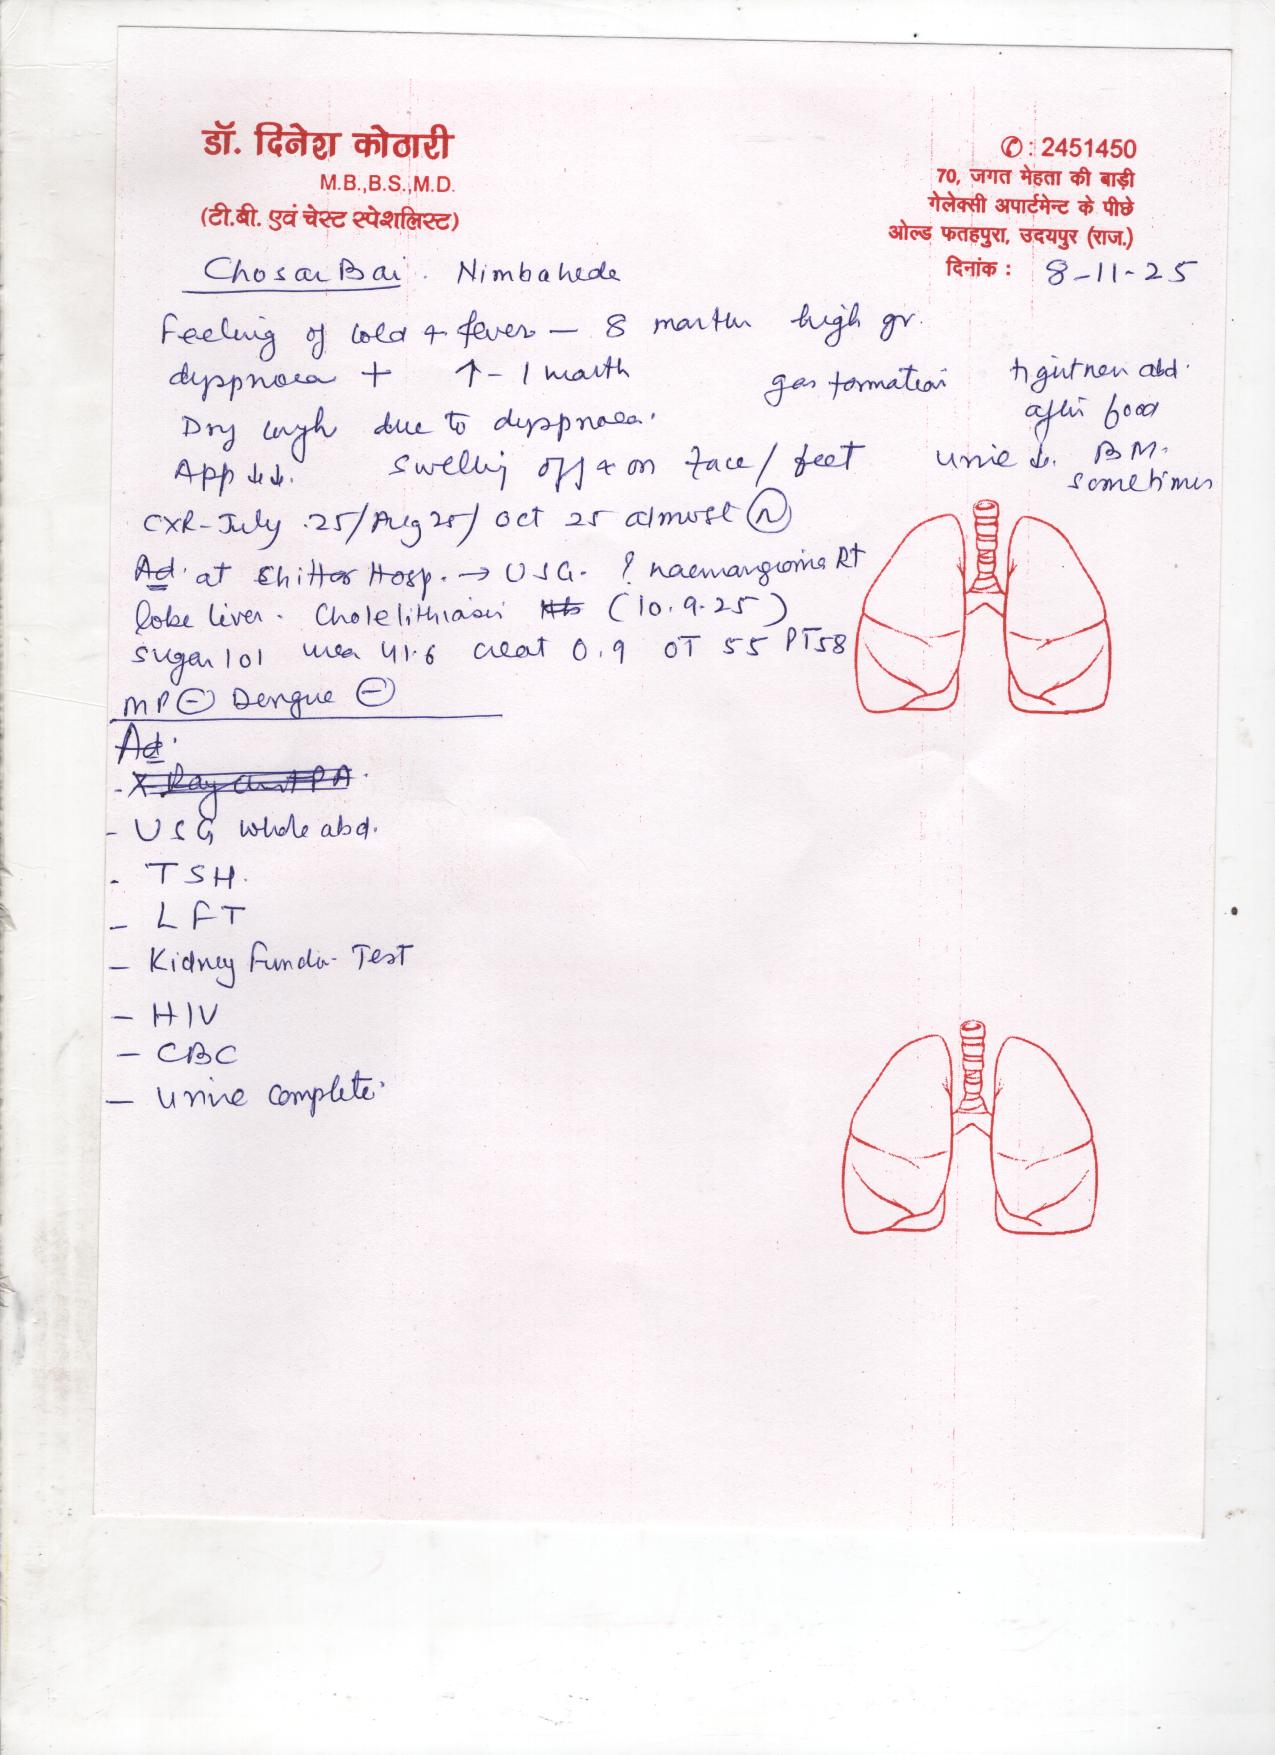 डॉ. दिनेश कोठारी
M.B.,B.S.,M.D.
(टी.बी. एवं चेस्ट स्पेशलिस्ट)
✆ : 2451450
70, जगत मेहता की बाड़ी
गेलेक्सी अपार्टमेन्ट के पीछे
ओल्ड फतहपुरा, उदयपुर (राज.)
दिनांक : 8-11-25
Chosar Bai. Nimbahede
Feeling of cold & fever — 8 months high gr.
dyspnoea + ↑ - 1 month gas formation tightness abd.
after food
Dry cough due to dyspnoea.
App ↓↓. Swelling off & on face / feet urine ↓. BM.
sometimes
CXR - July .25/Aug 25/ Oct 25 almost (N)
Ad. at Chittor Hosp. → USG. ? haemangioma Rt
lobe liver. Cholelithiasis (10.9.25)
Sugar 101 urea 41.6 creat 0.9 OT 55 PT 58
MP (-) Dengue (-)
Ad.
- X Ray chest PA.
- USG whole abd.
- TSH.
- LFT
- Kidney Functn. Test
- HIV
- CBC
- Urine complete.